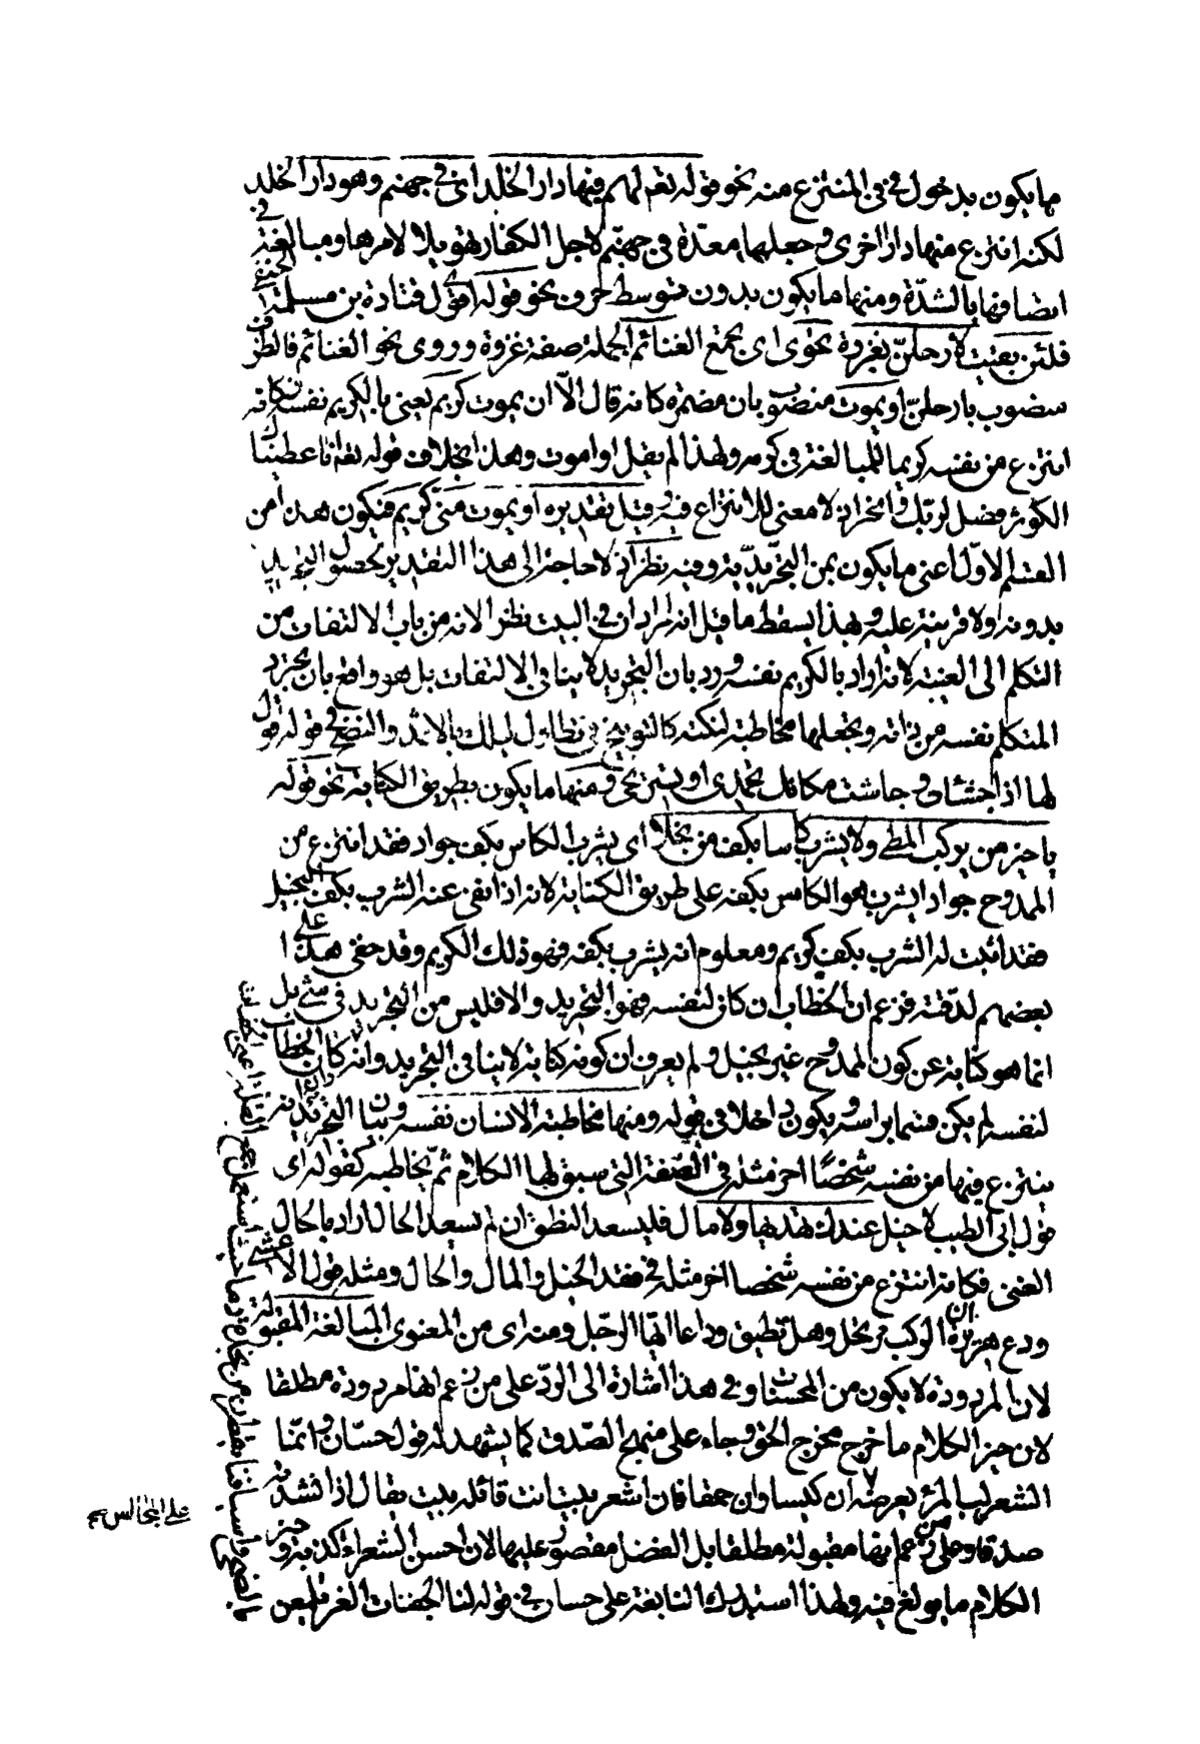 ما يكون بدخول في في المنتزع منه نحو قوله تعم لهم فيها دار الخلد اى في جهنم وهو دار الخلد
لكنه انتزع منها دارا اخرى وجعلها معدّة في جهنّم لاجل الكفار تهويلا لامرها ومبالغة في
اتصافها بالشدّة ومنها ما يكون بدون متوسط حرف نحو قوله اى قول قتادة بن مسلمة الحنفى
فلئن بقيت لارحلنّ بغزوة تحوى اى تجمع الغنائم الجملة صفة غزوة وروى نحو الغنائم فالظرف
منصوب بارحلنّ او يموت منصوب بان مضمرة كانه قال الّا ان يموت كريم يعنى بالكريم نفسه فكانه
انتزع من نفسه كريما للمبالغة في كرمه ولهذا لم يقل او اموت وهذا بخلاف قوله تعم انا اعطيناك
الكوثر فصل لربّك وانحر اذ لا معنى للانتزاع فيه وقيل تقديره او يموت منّى كريم فيكون هذا من
القسم الاوّل اعنى ما يكون بمن التجريديّة وفيه نظر اذ لا حاجة الى هذا التقدير لحصول التجريد
بدونه ولا قرينة عليه وبهذا يسقط ما قيل انه اراد ان في البيت نظرا لانه من باب الالتفات من
التكلم الى الغيبة لانه اراد بالكريم نفسه ورد بان التجريد لا ينافى الالتفات بل هو واقع بان يجرد
المتكلم نفسه من ذاته ويجعلها مخاطبة لنكتة كالتوبيخ في تطاول ليلك بالاثمد والنصح في قوله اقول
لها اذا جشئات وجاشت مكانك تحمدى او تستريحى ومنها ما يكون بطريق الكناية نحو قوله
يا خير من يركب المطى ولا يشرب كاسا بكف من بخلا اى يشرب الكاس بكف جواد فقد انتزع من
الممدوح جوادا يشرب هو الكاس بكفه على طريق الكناية لانه اذا نفى عنه الشرب بكف البخيل
فقد اثبت له الشرب بكف كريم ومعلوم انه يشرب بكفه فهو ذلك الكريم وقد خفى هذا على
بعضهم لدقته فزعم ان الخطاب ان كان لنفسه فهو التجريد والا فليس من التجريد في شئ بل
انما هو كناية عن كون الممدوح غير بخيل ولم يعرف ان كونه كناية لا ينافى التجريد وانه لو كان الخطاب
لنفسه لم يكن قسما براسه ويكون داخلا في قوله ومنها مخاطبة الانسان نفسه وبيان التجريد فيه انه
ينتزع فيها من نفسه شخصًا اخر مثله في الصّفة التى سيق لها الكلام ثمّ يخاطبه كقوله اى
قول ابى الطيب لا خيل عندك تهديها ولا مال فليسعد النطق ان لم يسعد الحال اراد بالحال
الغنى فكانه انتزع من نفسه شخصا اخر مثله في فقد الخيل والمال والحال ومثله قول الاعشى
ودع هريرة ان الركب مرتحل وهل تطيق وداعا ايّها الرّجل ومنه اى من المعنوى المبالغة المقبولة
لان المردودة لا يكون من المحسنات وفي هذا اشارة الى الردّ على من زعم انها مردودة مطلقا
لان خير الكلام ما خرج مخرج الحق وجاء على منهج الصّدق كما يشهد له قول حسّان وانمّا
الشعر لب المرء يعرضه ان كيسا وان حمقا فان اشعر بيت انت قائله بيت يقال اذا انشدته
صدقا وعلى من زعم انها مقبولة مطلقا بل الفضل مقصور عليها لان احسن الشعر اكذبه وخير
الكلام ما بولغ فيه ولهذا استدرك النابغة على حسان في قوله لنا الجفنات الغر يلمعن
على المجالس